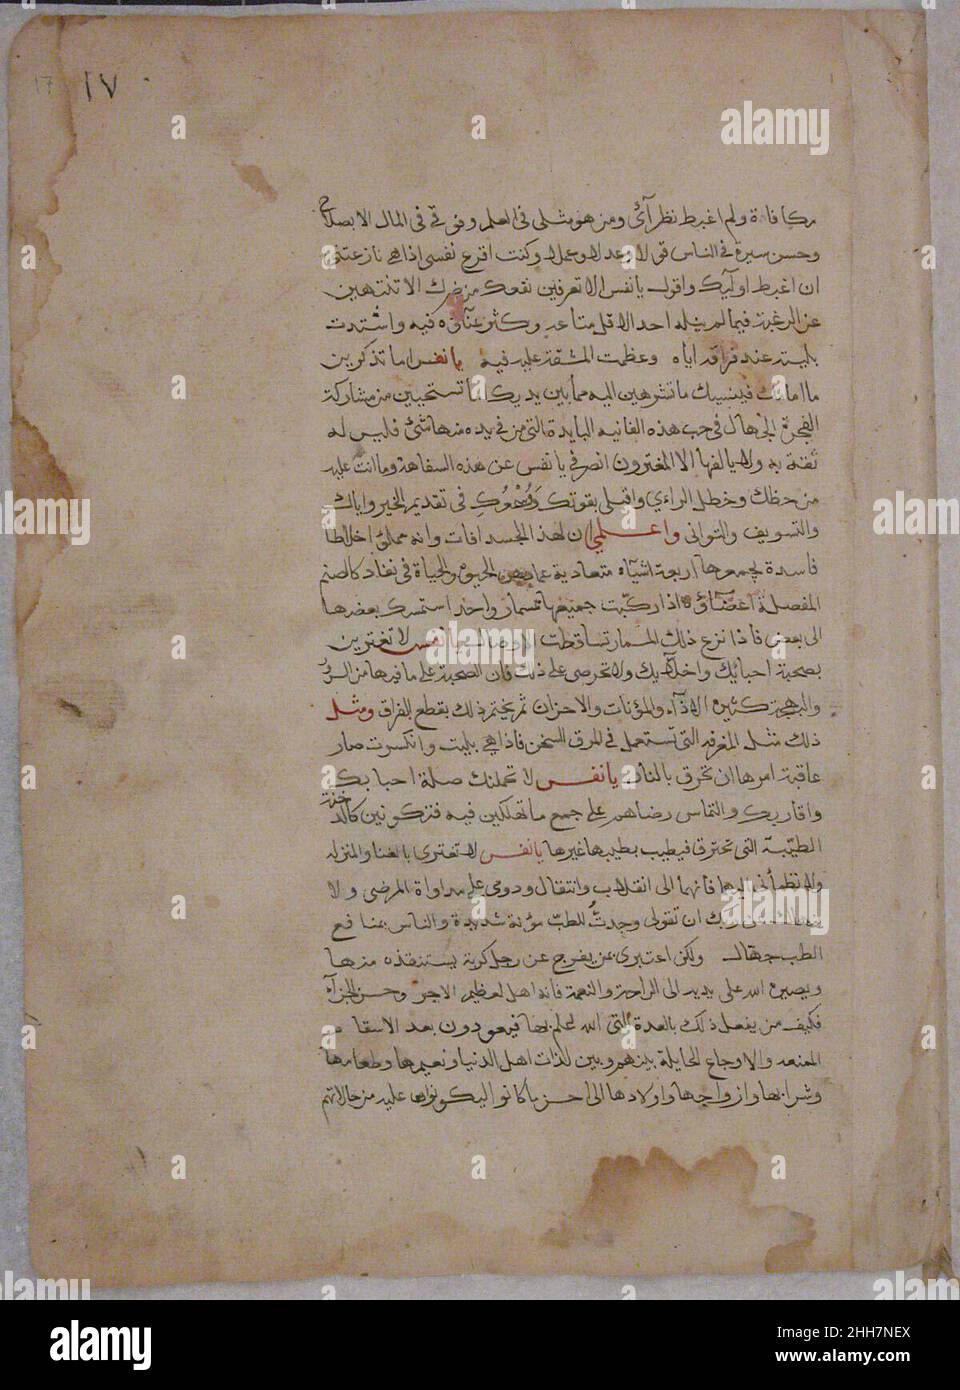 17 ١٧
مكافاة ولم اغبط نظرآئ ومن هو مثلى فى العلم وفوقى فى المال الا بصلاح
وحسن سيرة فى الناس قولا وعملا وكنت اقرع نفسى اذا هى نازعتنى
ان اغبط اوليك واقول يانفس الا تعرفين نفعك من ضرك الا تنتهين
عن الرغبة فيما لم ينله احد الا قل متاعه وكثر عنآؤه فيه واشتدت
بليته عند فراقه اياه وعظمت المشقة عليه فيه يا نفس اما تذكرين
ما امامك فينسيك ما تشرهين اليه مما بين يديك الا تستحيين من مشاركة
الفجرة الجهال فى حب هذه الفانية البايدة التى من فى يده منها شئ فليس له
ثقة به ولا يالفها الا المغترون انصرفى يا نفس عن هذه السفاهة وما انت عليه
من حظك وخطل الراءى واقبلى بقوتك فى تقديم الخير واياك
والتسويف والتوانى واعلمى ان لهذا الجسد افات وانه مملوؤ اخلاطا
فاسدة يجمعها اربعة اشياء متعادية والحياة فى نفاد كالصنم
المفصلة اعضآؤه اذا ركبت جميعها مسمار واحد استمسك بعضها
الى بعض فاذا نزع ذلك المسمار تساقطت الاوصال يا نفس لا تغترين
بصحبة احبائيك واخلآئيك ولا تحرصى على ذلك فان الصحبة على ما فيها من السرور
والبهجة كثيرة الاذآء والمؤنات والاحزان ثم يختم ذلك بقطع الفراق ومثل
ذلك مثل المغرفة التى تستعمل فى المرق السخن فاذا هى بليت وانكسرت صار
عاقبة امرها ان تحرق بالنار يا نفس لا تحملنك صلة احبابك
واقاربك والتماس رضاهم على جمع ما تهلكين فيه فتكونين كالدخنة
الطيبة التى تحترق فيطيب بطيبها غيرها يا نفس لا تغترى بالغنا والمنزلة
ولا تطمأنى اليها فانهما الى انقلاب وانتقال ودومى على مداواة المرضى ولا
ان تقولى وجدت للطب مؤنة شديدة والناس بمنافع
الطب جهال ولكن اعتبرى بمن يفرج عن رجل كربة يستنقذه منها
ويصيره الله على يديه الى الراحة والنعمة فانه اهل لعظيم الاجر وحسن الجزآء
فكيف من يفعل ذلك بالعدة التى الله يعلم بها فيعودون بعد الاسقام
والاوجاع الحايلة بينهم وبين لذات اهل الدنيا ونعيمها وطعامها
وشرابها وازواجها واولادها الى احسن ما كانوا ليكونوا عليه من حالاتهم
alamy
alamy
alamy
alamy
Image ID: 2HH7NEX
www.alamy.com